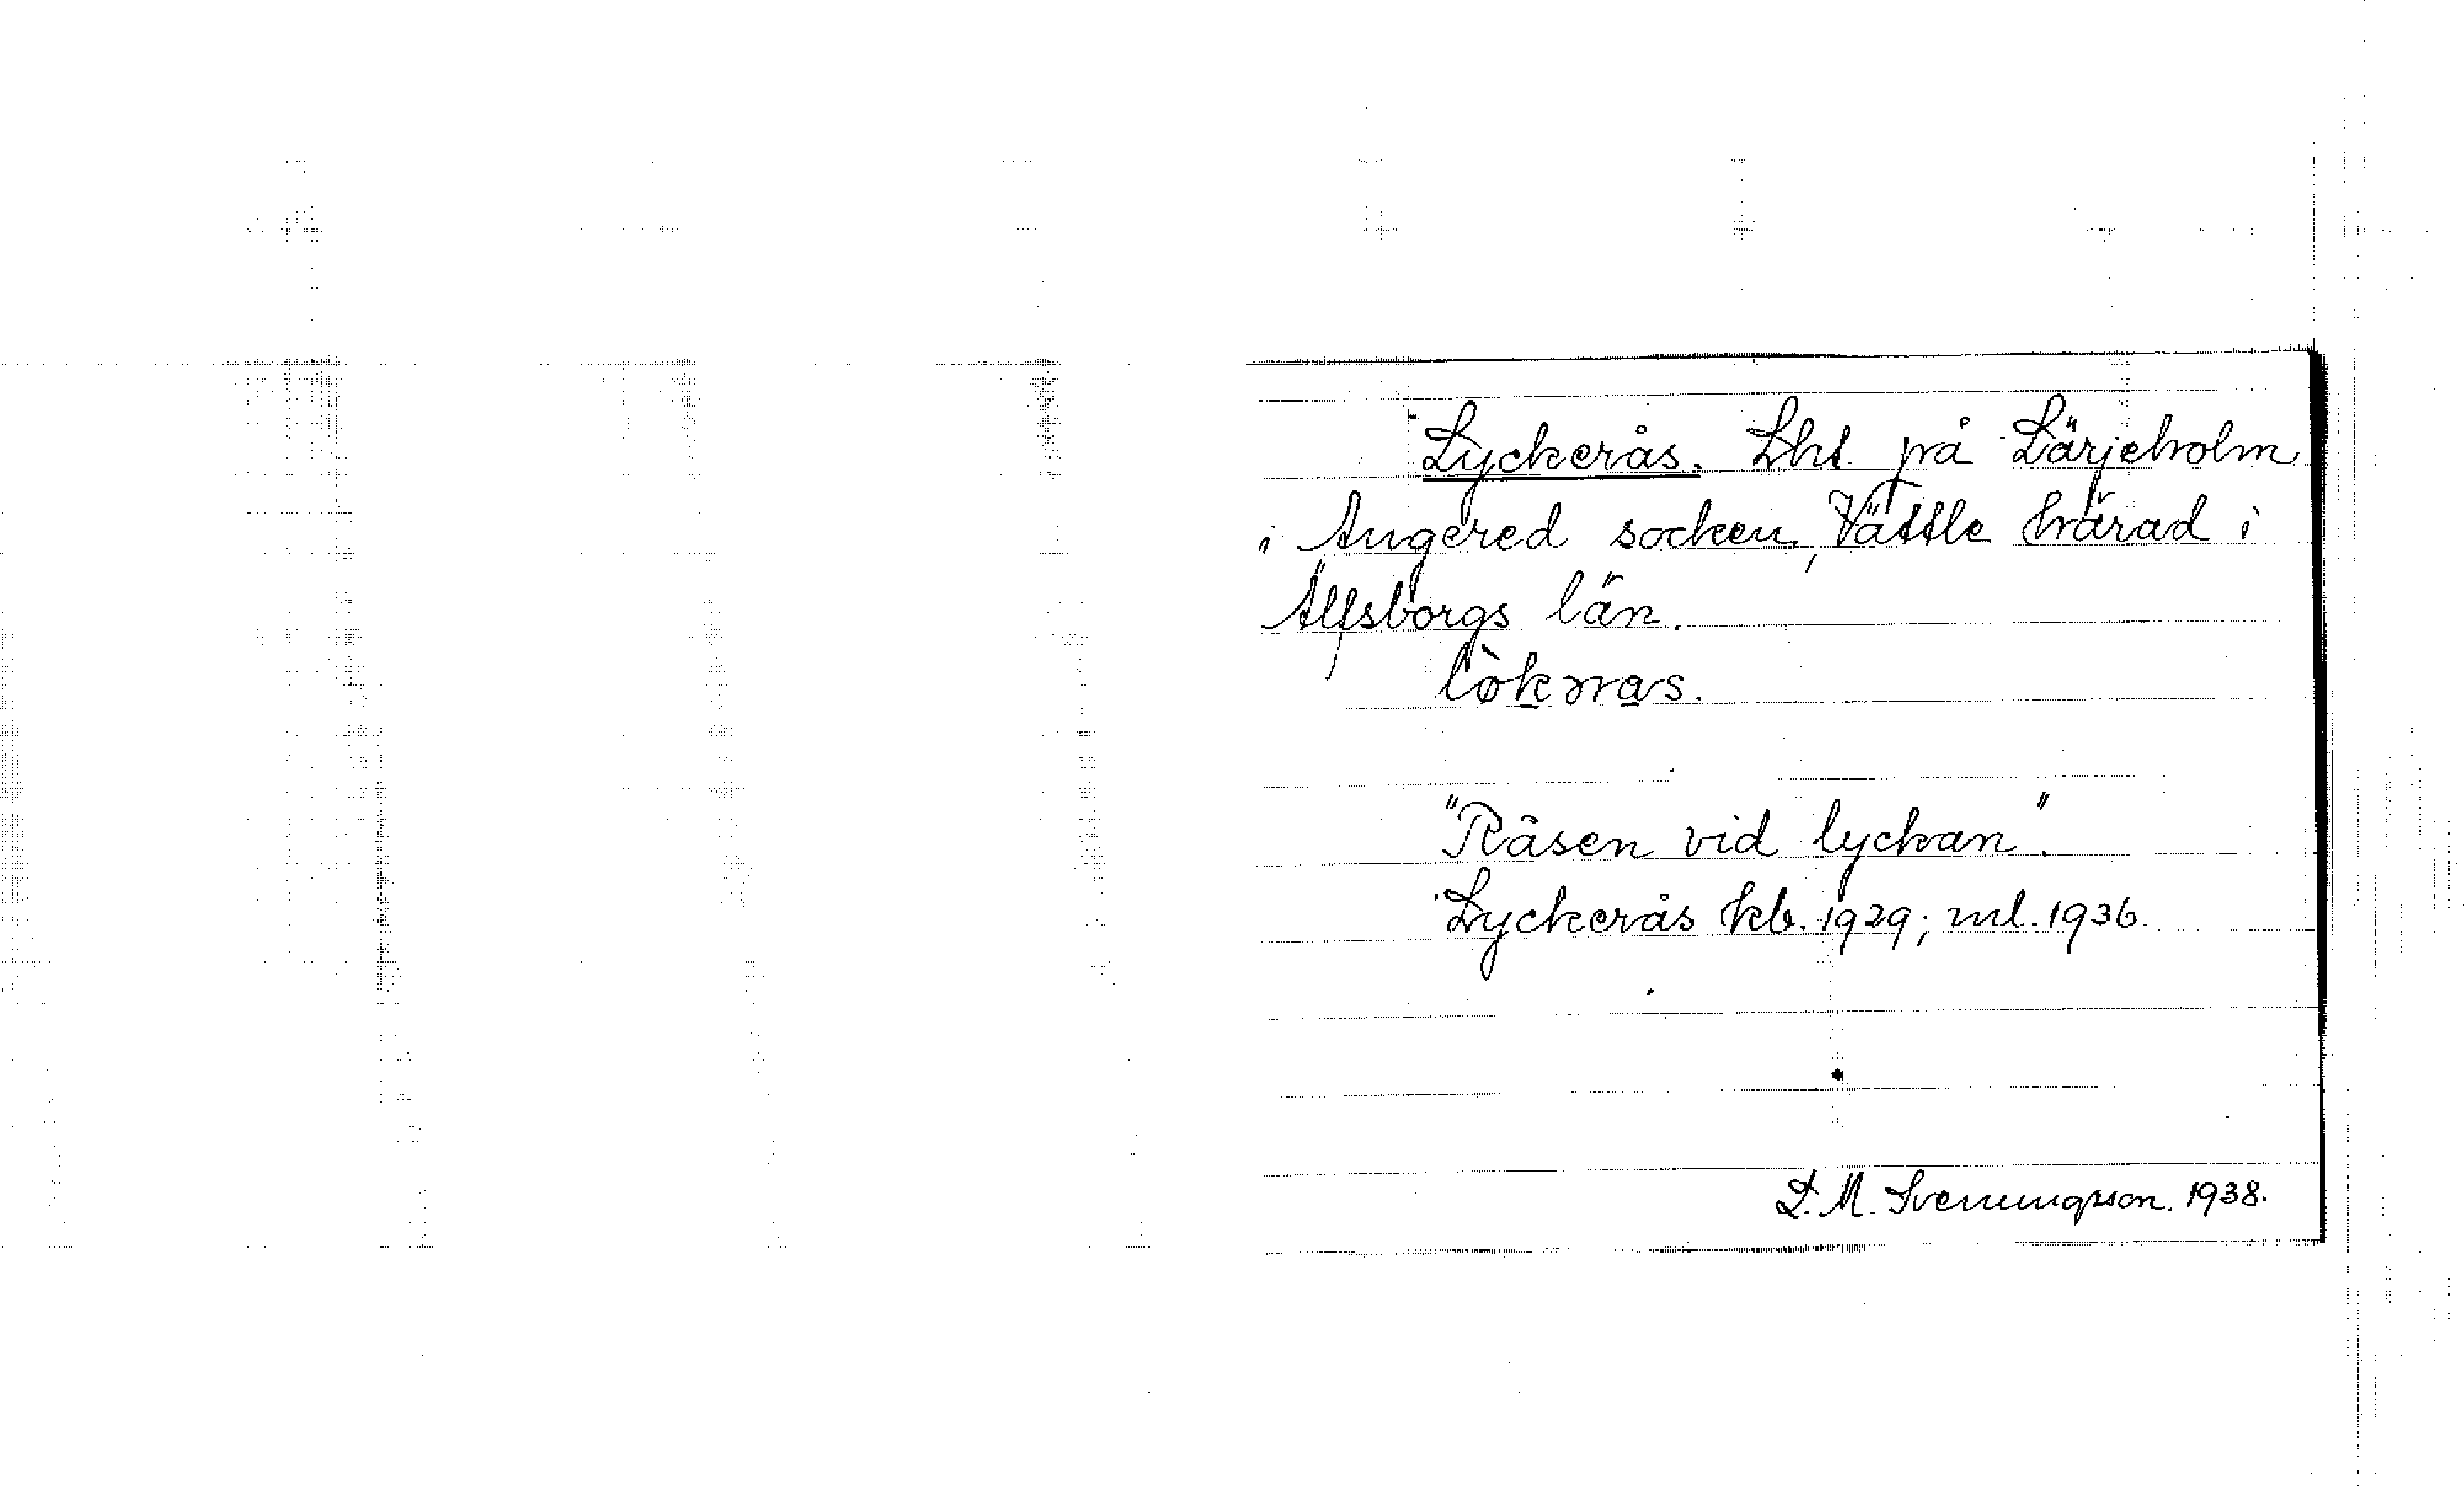 Lyckerås. Lht. på Lärjeholm
i Angered socken, Vättle härad i
Älfsborgs län.
"Råsen vid lyckan".
Lyckerås kb. 1929; ml. 1936.
L. M. Svenungsson. 1938.